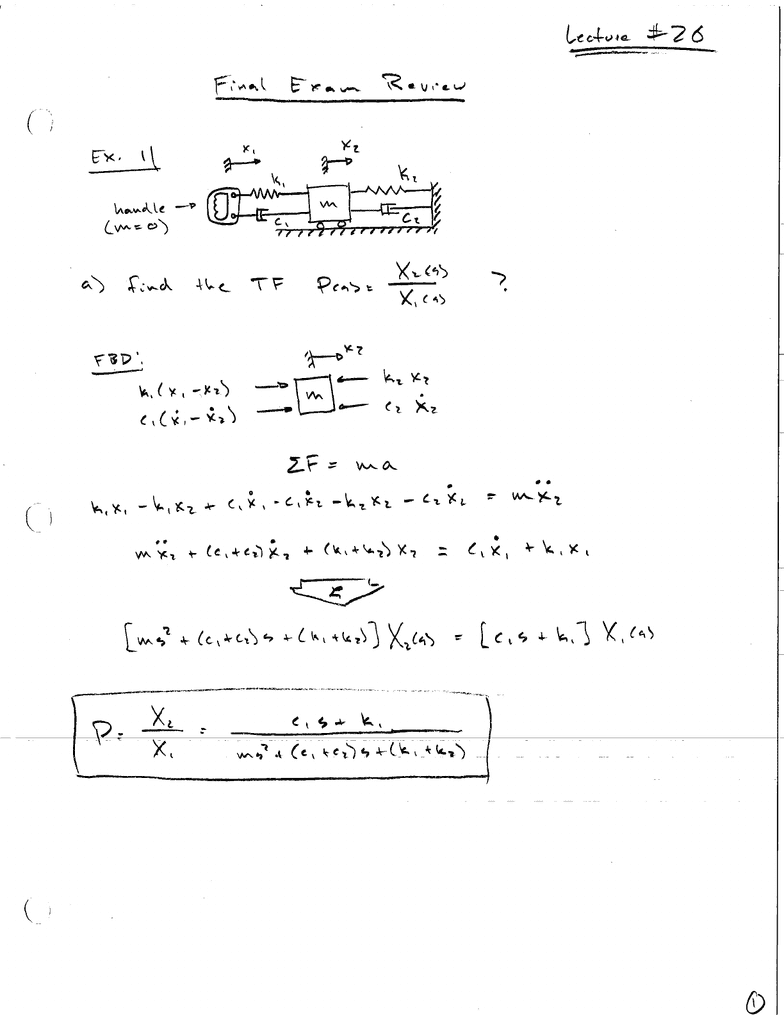 Lecture #26
Final Exam Review
Ex. 1|
x₁ x₂
k₁ k₂
handle → m
(m=0) c₁ c₂
a) find the TF P(s) = X₂(s)/X₁(s) ?
FBD:
x₂
k₁(x₁-x₂) → m ← k₂x₂
c₁(ẋ₁-ẋ₂) → ← c₂ẋ₂
ΣF = ma
k₁x₁ - k₁x₂ + c₁ẋ₁ - c₁ẋ₂ - k₂x₂ - c₂ẋ₂ = mẍ₂
mẍ₂ + (c₁+c₂)ẋ₂ + (k₁+k₂)x₂ = c₁ẋ₁ + k₁x₁
ℒ
[ms² + (c₁+c₂)s + (k₁+k₂)] X₂(s) = [c₁s + k₁] X₁(s)
P = X₂/X₁ = (c₁s + k₁)/(ms² + (c₁+c₂)s + (k₁+k₂))
1